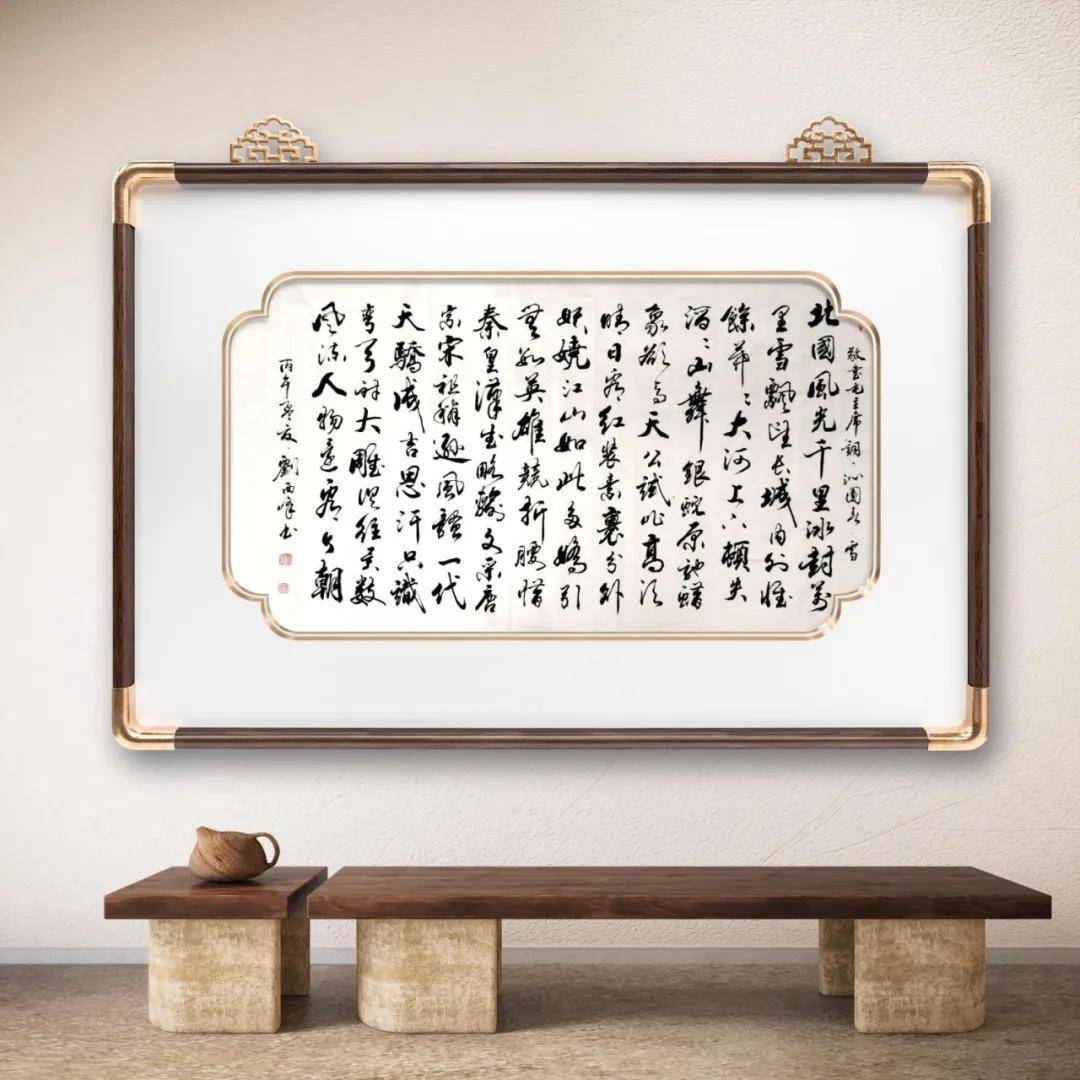 敬書毛主席詞、沁園春、雪
北國風光千里冰封萬
里雪飄望長城內外惟
餘莽〻大河上下頓失
滔〻山舞銀蛇原馳蠟
象欲與天公試比高須
晴日看紅裝素裹分外
妖嬈江山如此多嬌引
無數英雄競折腰惜
秦皇漢武略輸文采唐
宗宋祖稍遜風騷一代
天驕成吉思汗只識
彎弓射大雕俱往矣數
風流人物還看今朝
丙午孟夏、劉西峰書